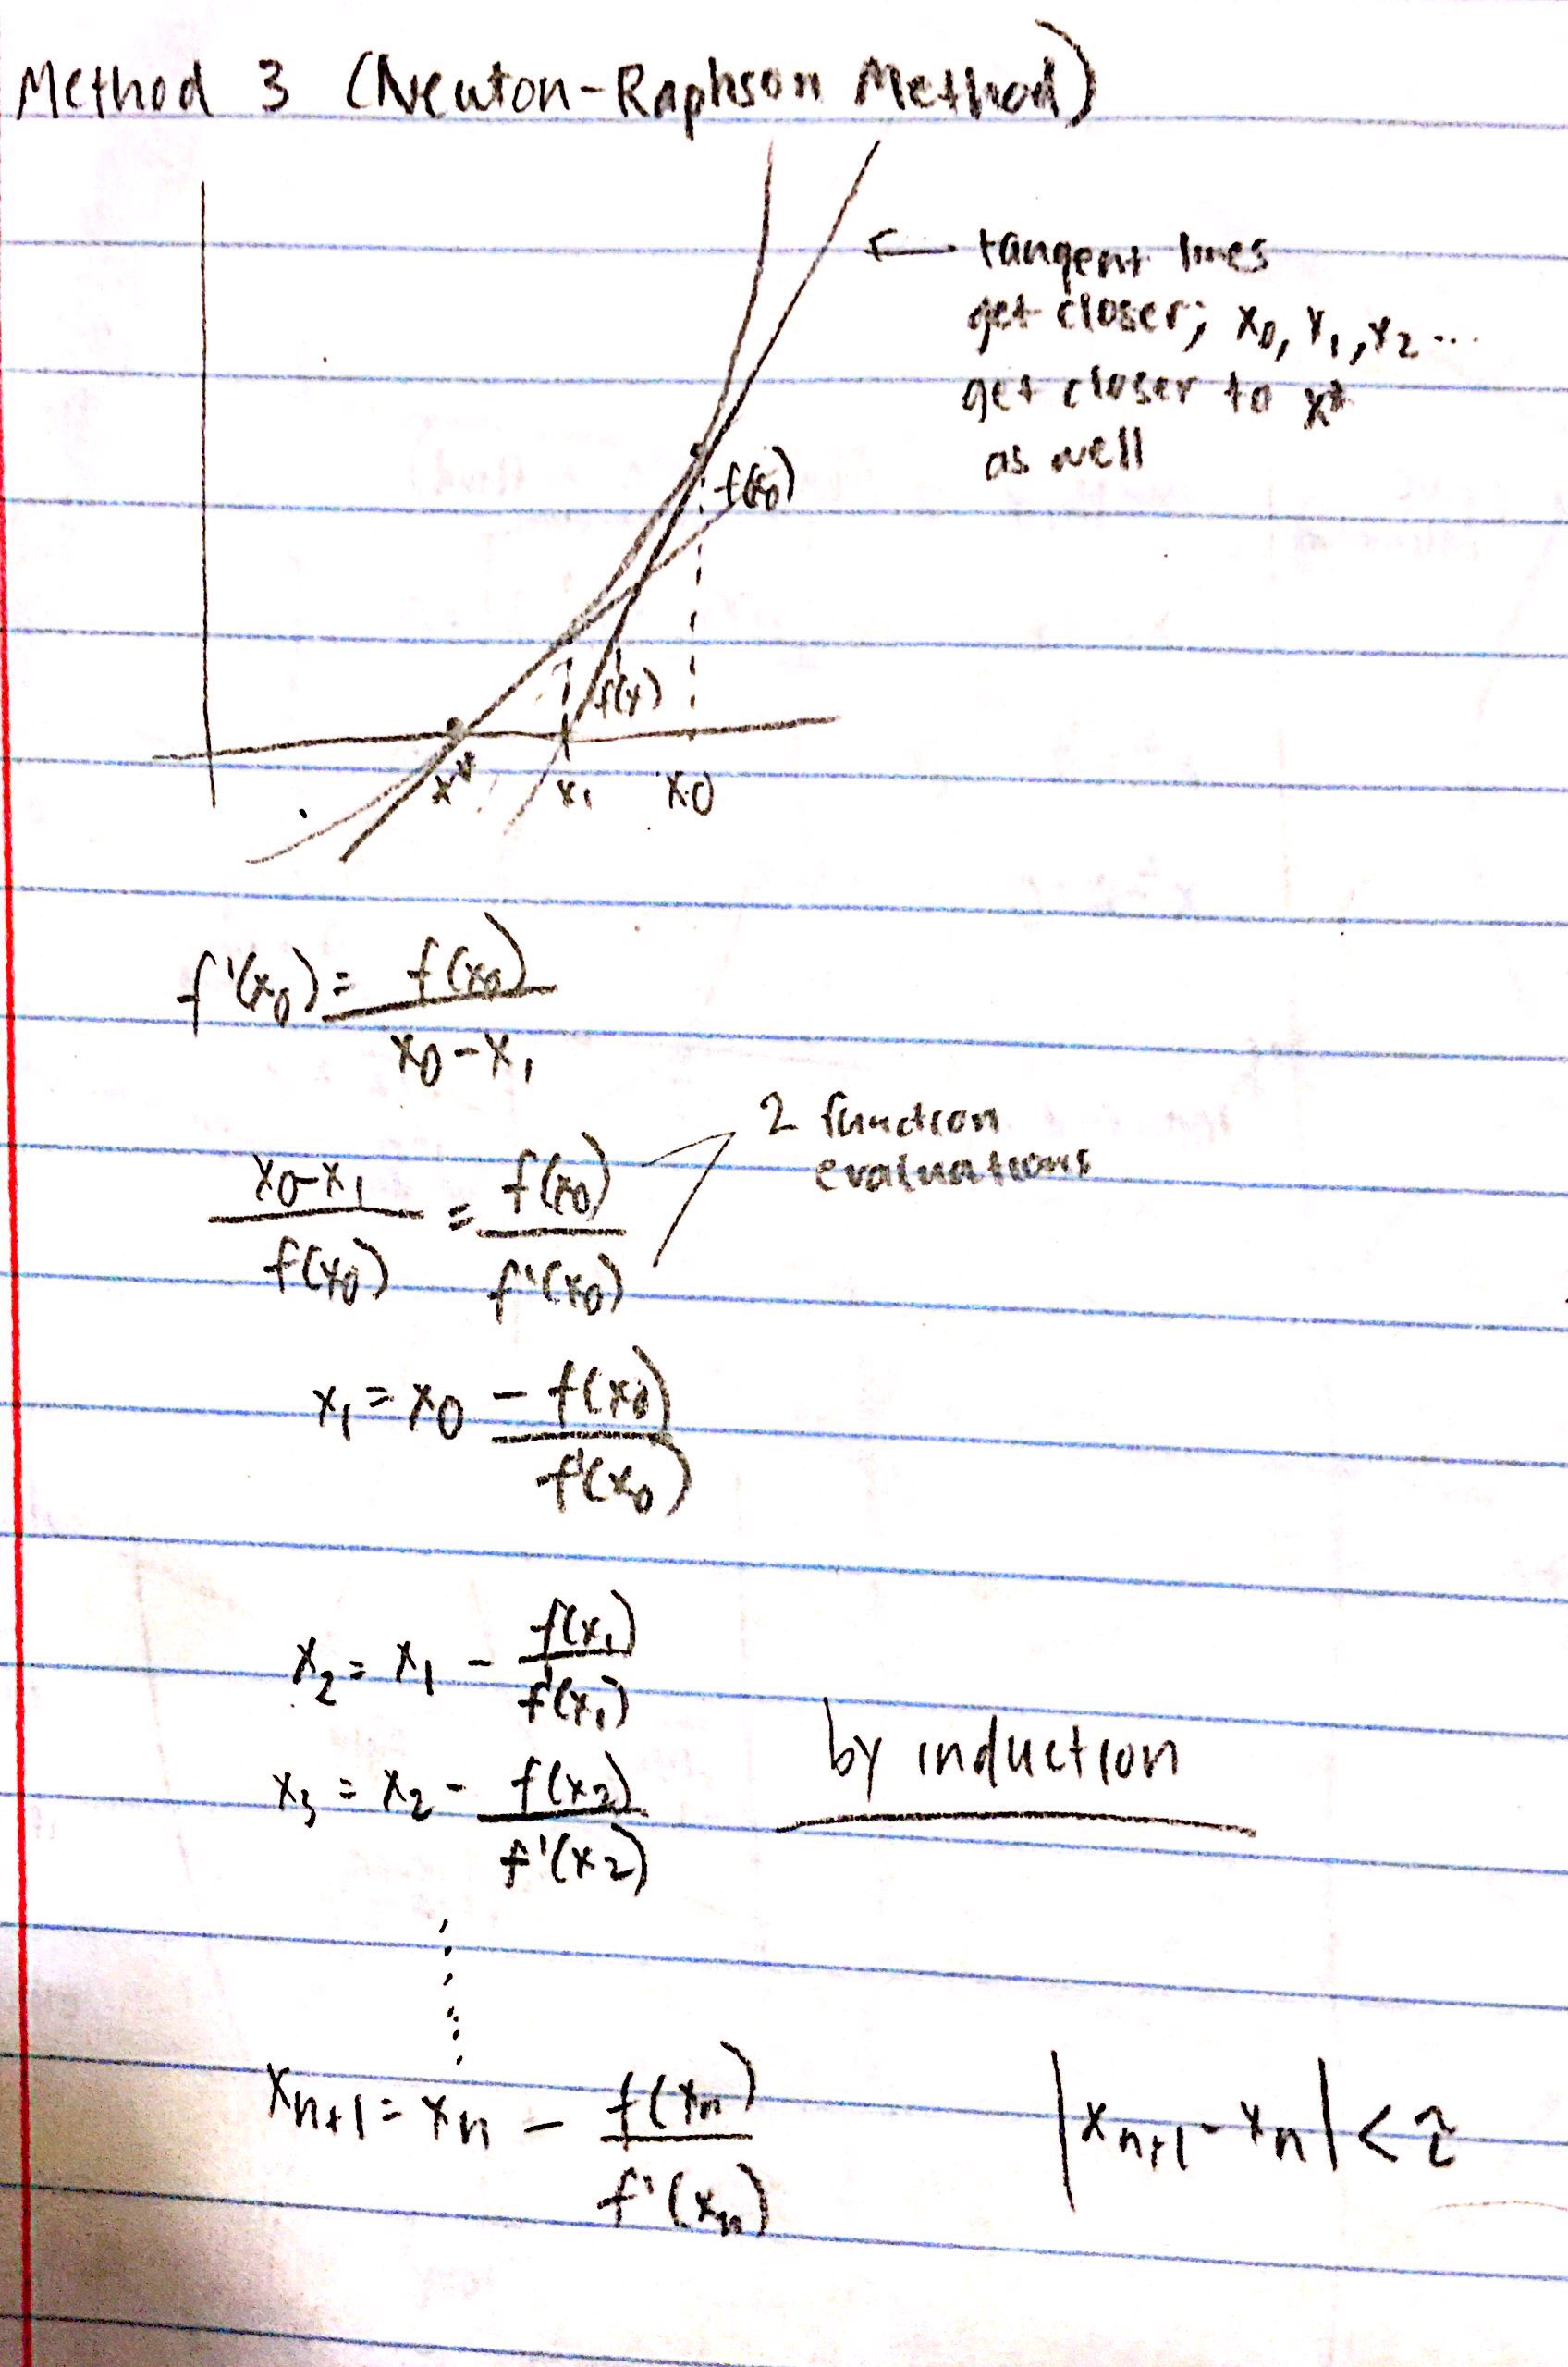 Method 3 (Newton-Raphson Method)
← tangent lines
get closer; x₀, x₁, x₂ ...
get closer to x*
as well
f(x₀)
f(x)
x* x₁ x₀
f'(x₀) = f(x₀) / (x₀ - x₁)
2 function
evaluations
(x₀ - x₁) / f(x₀) = f(x₀) / f'(x₀)
x₁ = x₀ - f(x₀) / f'(x₀)
x₂ = x₁ - f(x₁) / f'(x₁)
by induction
x₃ = x₂ - f(x₂) / f'(x₂)
xₙ₊₁ = xₙ - f(xₙ) / f'(xₙ)
|xₙ₊₁ - xₙ| <